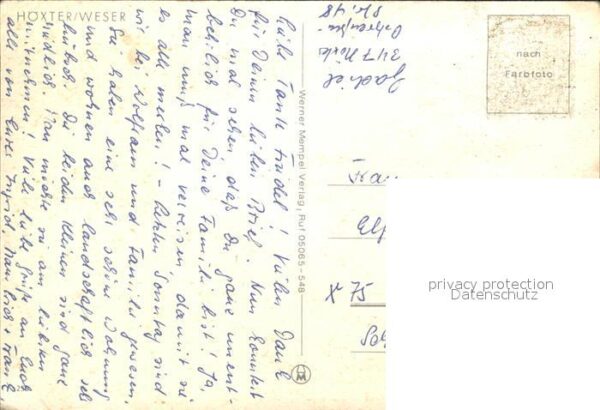 HÖXTER/WESER
Liebe Tante Friedel! Vielen Dank
für Deinen lieben Brief. Nun konntest
Du mal sehen, daß Du ganz unent-
behrlich für Deine Familie bist! Ja,
man muß mal verreisen, damit sie
es alle merken! - Letzten Sonntag sind
wir bei Wolfram und Familie gewesen.
Sie haben eine sehr schöne Wohnung
und wohnen auch landschaftlich sehr
hübsch. Die beiden Kleinen sind ganz
niedlich. Man möchte sie am liebsten
mitnehmen! Viele liebe Grüße an Euch
alle von Eurer Ingrid,
Werner Mempel Verlag, Ruf 05065-548
HM
347 Höxter
Str. 48
nach
Farbfoto
X 75
privacy protection
Datenschutz